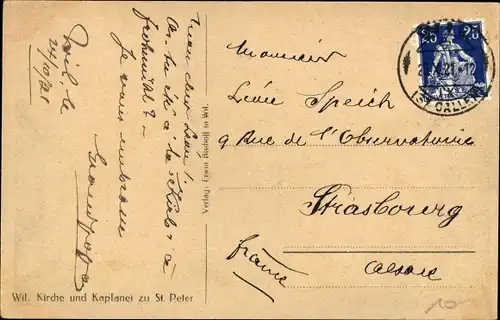 Wil le
24/10/21
Mon cher
As-tu été à la
Frohmütt? –
Je vous embrasse
Grandpapa
Verlag: Erwin Bischoff in Wil.
Wil. Kirche und Kaplanei zu St. Peter
25 25
(ST. GALLEN)
Monsieur
Speich
9 Rue de l'Observatoire
Strasbourg
france
Alsace